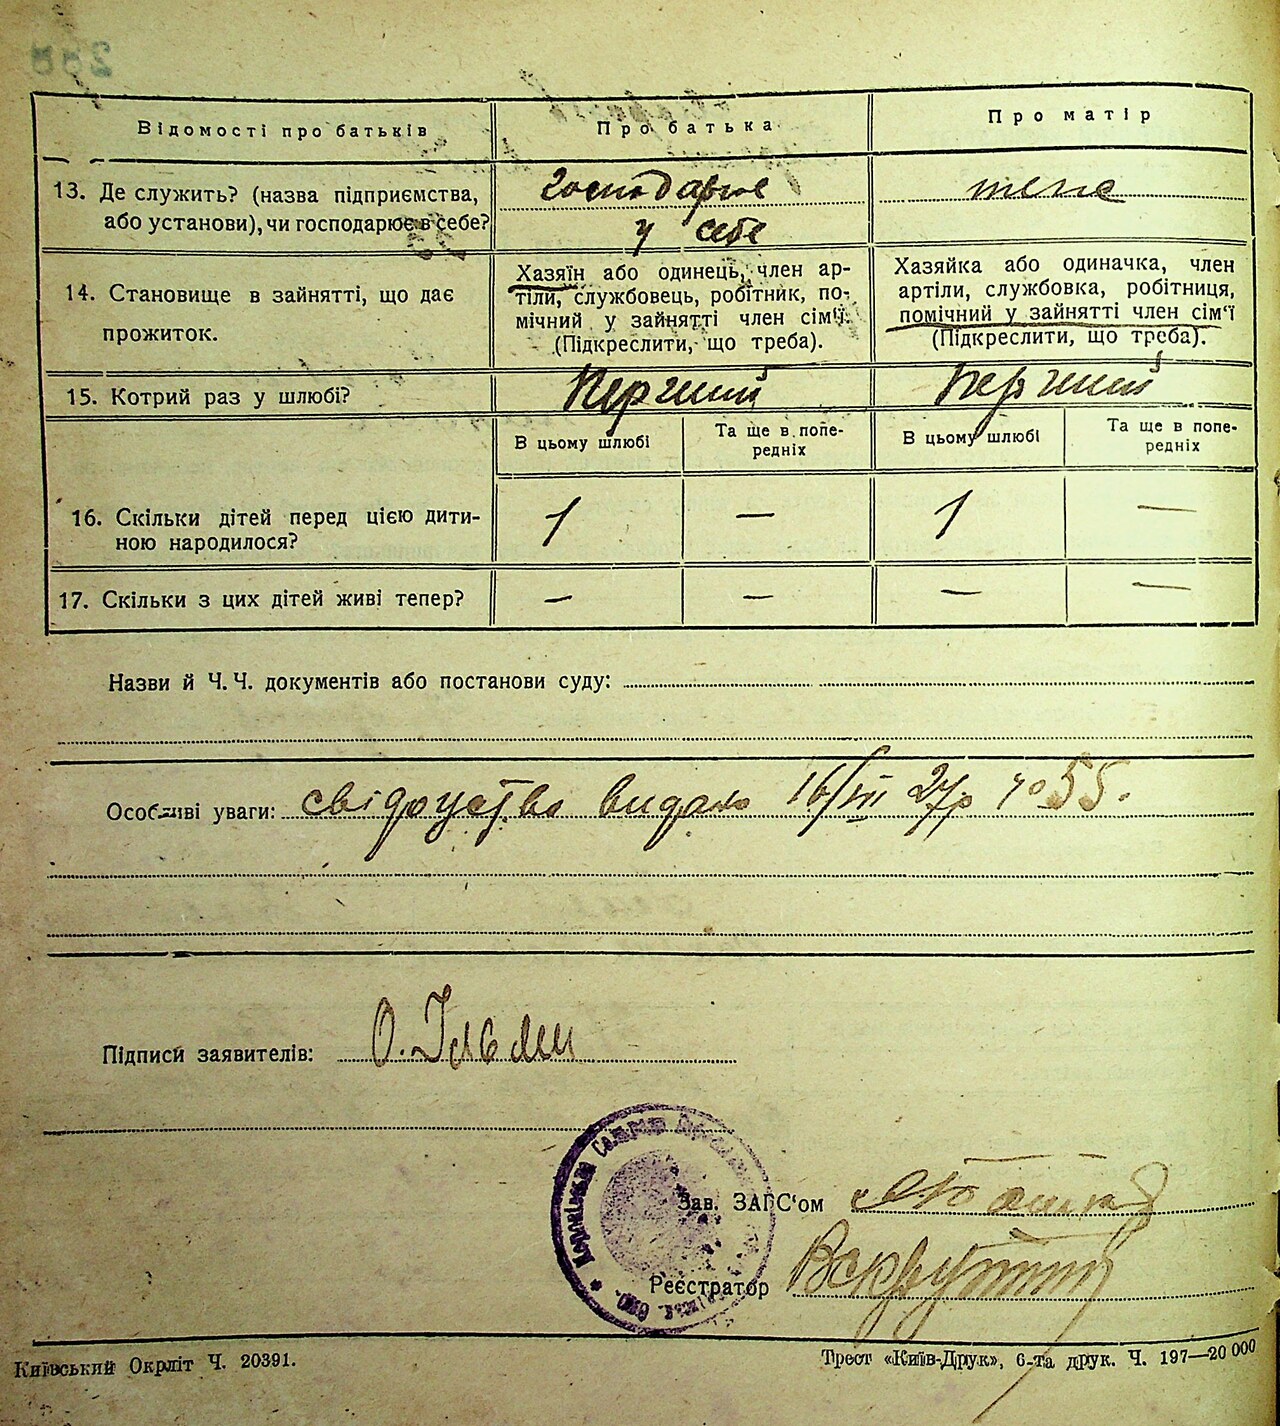 Відомості про батьків
Про батька
Про матір
13. Де служить? (назва підприємства, або установи), чи господарює в себе?
господарює
у себе
теж
14. Становище в зайнятті, що дає прожиток.
Хазяїн або одинець, член ар-
тіли, службовець, робітник, по-
мічний у зайнятті член сім'ї.
(Підкреслити, що треба).
Хазяйка або одиначка, член
артіли, службовка, робітниця,
помічний у зайнятті член сім'ї
(Підкреслити, що треба).
15. Котрий раз у шлюбі?
Перший
Перший
В цьому шлюбі
Та ще в попе-
редніх
В цьому шлюбі
Та ще в попе-
редніх
16. Скільки дітей перед цією дити-
ною народилося?
1
—
1
—
17. Скільки з цих дітей живі тепер?
—
—
—
—
Назви й Ч. Ч. документів або постанови суду:
Особливі уваги: свідоцтво видано 16/III 27р № 55.
Підписи заявителів: О.
Зав. ЗАГС'ом
Реєстратор
Київський Окрліт Ч. 20391.
Трест «Київ-Друк», 6-та друк. Ч. 197—20 000